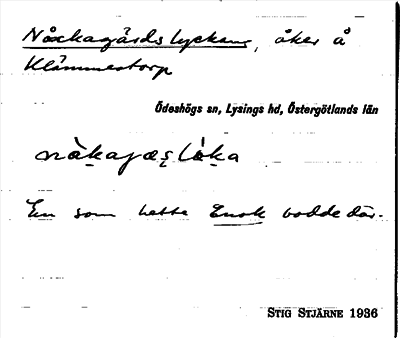 Nåckagårdslyckan, åker å
Klämmestorp
Ödeshögs sn, Lysings hd, Östergötlands län
En som hette Enok bodde där.
STIG STJÄRNE 1936